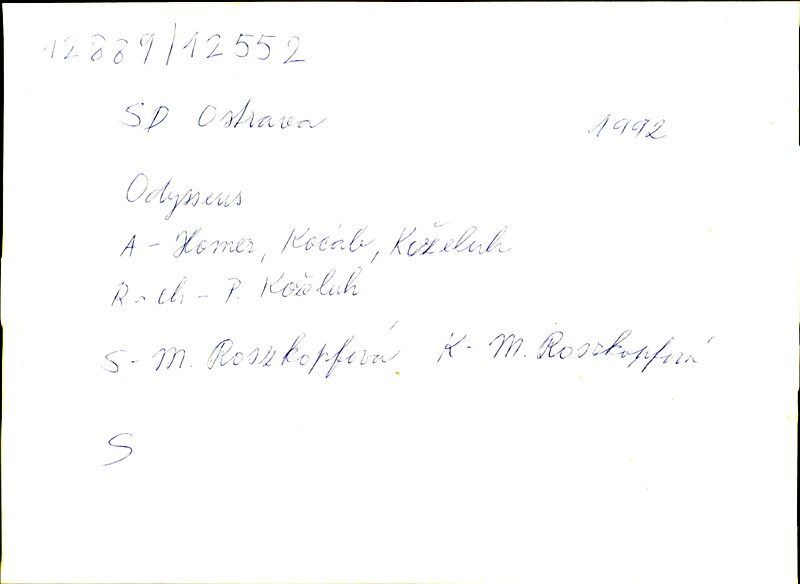 12889/12552
SD Ostrava 1992
Odysseus
A - Homer, Kocáb, Koželuh
R - ch - P. Koželuh
S - M. Roszkopfová K - M. Roszkopfová
S